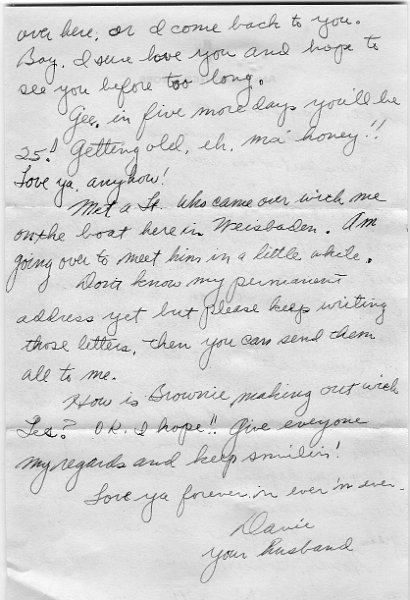 over here, or I come back to you.
Boy, I sure love you and hope to
see you before too long.
Gee, in five more days you'll be
25! Getting old, eh, ma' honey!!
Love ya, anyhow!
Met a Lt. who came over with me
on the boat here in Weisbaden. Am
going over to meet him in a little while.
Don't know my permanent
address yet but please keep writing
those letters, then you can send them
all to me.
How is Brownie making out with
Les? OK. I hope!! Give everyone
my regards and keep smilin'!
Love ya forever 'n ever 'n ever.
Davie
Your Husband